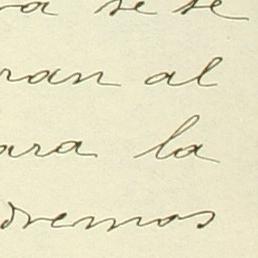 a se se
ran al
ara la
dremos